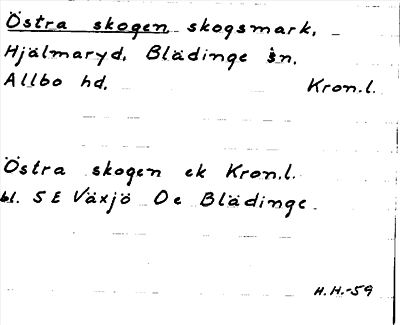 Östra skogen, skogsmark,
Hjälmaryd, Blädinge sn,
Allbo hd, Kron.l.
Östra skogen ek Kron.l.
bl. 5 E Växjö Oe Blädinge.
H.H.-59